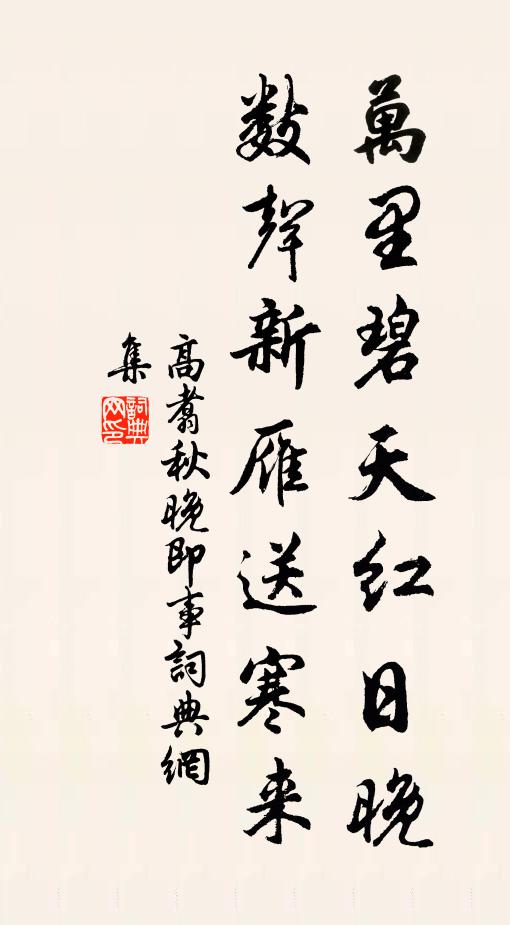 萬里碧天紅日晚
數聲新雁送寒来
高翥秋晚即事詞典網
集
詞典
网印